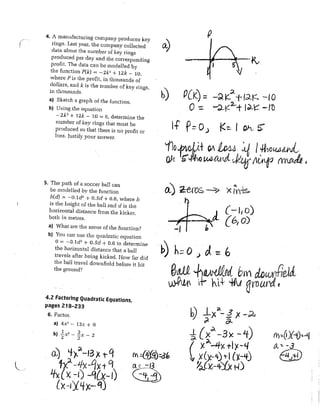 4. A manufacturing company produces key
rings. Last year, the company collected
data about the number of key rings
produced per day and the corresponding
profit. The data can be modelled by
the function P(k) = −2k² + 12k − 10,
where P is the profit, in thousands of
dollars, and k is the number of key rings,
in thousands.
a) Sketch a graph of the function.
b) Using the equation
−2k² + 12k − 10 = 0, determine the
number of key rings that must be
produced so that there is no profit or
loss. Justify your answer.
a)
P
k
1
5
b) P(k) = -2k² + 12k - 10
0 = -2k² + 12k - 10
If P=0, k= 1 or 5
No profit or loss if 1 thousand
or 5 thousand key rings made.
5. The path of a soccer ball can
be modelled by the function
h(d) = −0.1d² + 0.5d + 0.6, where h
is the height of the ball and d is the
horizontal distance from the kicker,
both in metres.
a) What are the zeros of the function?
b) You can use the quadratic equation
0 = −0.1d² + 0.5d + 0.6 to determine
the horizontal distance that a ball
travels after being kicked. How far did
the ball travel downfield before it hit
the ground?
a) zeros → x ints
-1
6
(-1,0)
(6,0)
b) h=0, d = 6
Ball travelled 6m downfield
when it hit the ground.
4.2 Factoring Quadratic Equations,
pages 218–233
6. Factor.
a) 4x² − 13x + 9
b) ½x² − 3/2x − 2
a) 4x²-13x+9
4x²-4x-9x+9
4x(x-1)-9(x-1)
(x-1)(4x-9)
m=(4)(9)=36
a=-13
(-4,-9)
b) ½x² - 3/2x - 2
½(x² - 3x - 4)
(x²-4x+1x-4
x(x-4)+1(x-4)
½(x-4)(x+1)
m=(1)(-4)=-4
a=-3
(-4,+1)